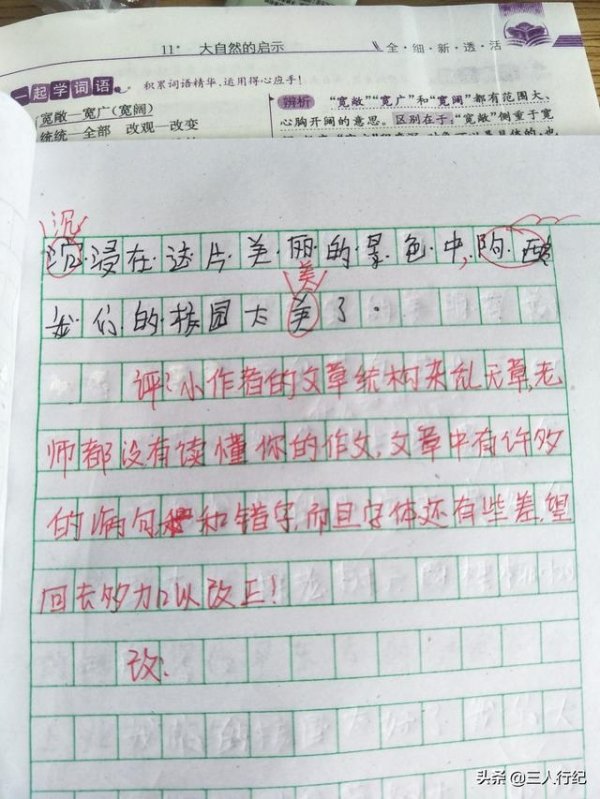 11* 大自然的启示 全·细·新·透·活
一起学词语 积累词语精华,运用得心应手!
宽敞—宽广(宽阔)
统统—全部 改观—改变
辨析 “宽敞”“宽广”和“宽阔”都有范围大、
心胸开阔的意思。区别在于:“宽敞”侧重于宽
沉
浸在这片美丽的景色中,陶醉
美
我们的校园太美了。
评:小作者的文章结构杂乱无章,老
师都没有读懂你的作文,文章中有许多
的病句和错字,而且字体还有些差,望
回去多加以改正!
改:
头条 @三人行纪